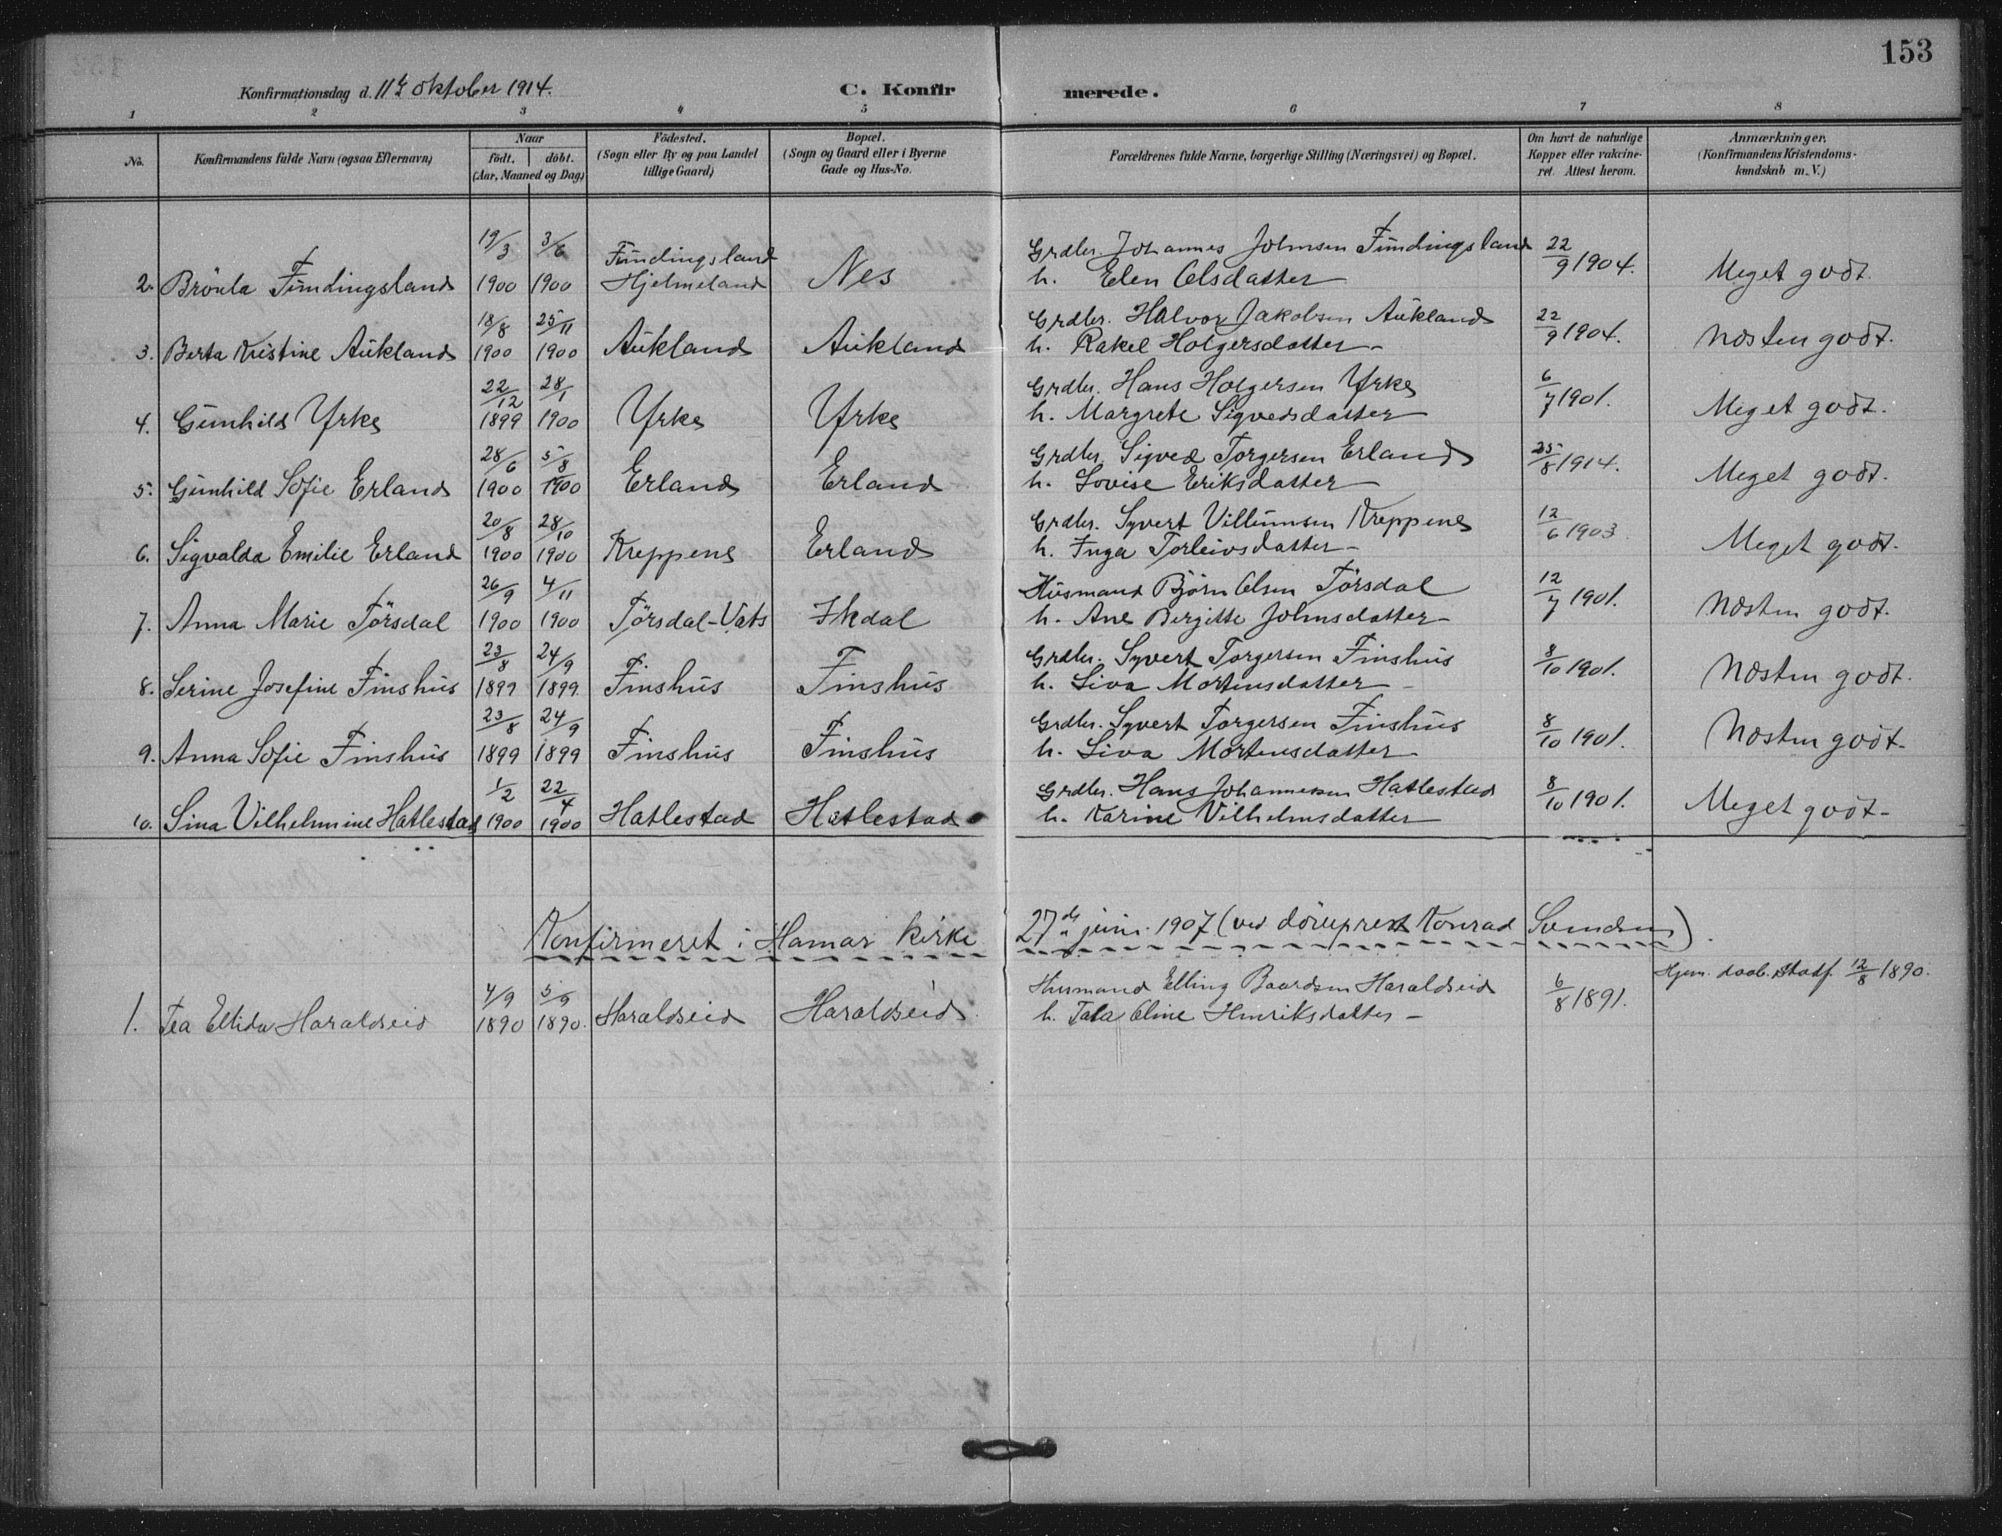 153
Konfirmationsdag d. 11te Oktober 1914.
C. Konfirmerede.
1 2 3 4 5 6 7 8
No.
Konfirmandens fulde Navn (ogsaa Efternavn)
Naar
födt. döbt.
(Aar, Maaned og Dag)
Födested.
(Sogn eller By og paa Landet
tillige Gaard)
Bopæl.
(Sogn og Gaard eller i Byerne
Gade og Hus-No.
Forældrenes fulde Navne, borgerlige Stilling (Næringsvei) og Bopæl.
Om havt de naturlige
Kopper eller vakcine-
ret. Attest herom.
Anmærkninger,
(Konfirmandens Kristendoms-
kundskab m. V.)
19/3 3/6 Fundingsland Grdbr. Johannes Johnsen Fundingsland 22/9 1904.
2. Fundingsland 1900 1900 Hjelmeland Nes h. Elen Olsdatter Meget godt.
18/8 25/11 Grdbr. Halvor Jakobsen Aukland 22/9 1904.
3. Berta Kristine Aukland 1900 1900 Aukland Aukland h. Rakel Holgersdatter - Næsten godt.
22/12 28/1 Grdbr. Hans Holgersen Yrke 6/7 1901.
4. Gunhild Yrke 1899 1900 Yrke Yrke h. Margrete Sigvedsdatter Meget godt.
28/6 5/8 Grdbr. Sigved Torgersen Erland 25/8 1914.
5. Gunhild Sofie Erland 1900 1900 Erland Erland h. Lovise Eriksdatter Meget godt.
20/8 28/10 Grdbr. Syvert Villumsen Kreppene 12/6 1903
6. Sigvalda Emilie Erland 1900 1900 Kreppene Erland h. Inga Torleivsdatter - Meget godt.
26/9 4/11 Husmand Bjørn Olsen Tørsdal 12/7 1901.
7. Anna Marie Tørsdal 1900 1900 Tørsdal-Vats Ikdal h. Ane Bergitte Johnsdatter - Næsten godt.
23/8 24/9 Grdbr. Syvert Torgersen Finshus 8/10 1901.
8. Serine Josefine Finshus 1899 1899 Finshus Finshus h. Siva Mortensdatter - Næsten godt.
23/8 24/9 Grdbr. Syvert Torgersen Finshus 8/10 1901.
9. Anna Sofie Finshus 1899 1899 Finshus Finshus h. Siva Mortensdatter - Næsten godt -
1/2 22/4 Grdbr. Hans Johannessen Hatlestad 8/10 1901.
10. Sina Vilhelmine Hatlestad 1900 1900 Hatlestad Hatlestad h. Karine Vilhelmsdatter Meget godt -
Konfirmeret i Hamar kirke 27de juni 1907 (ved Konrad Svendsen).
4/9 5/9 Husmand Elling Baardsen Haraldseid 6/8 1891. Hjem. daab. stadf. 12/8 1890.
1. Tea Ellida Haraldseid 1890 1890. Haraldseid Haraldseid. h. Tala Oline Henriksdatter -